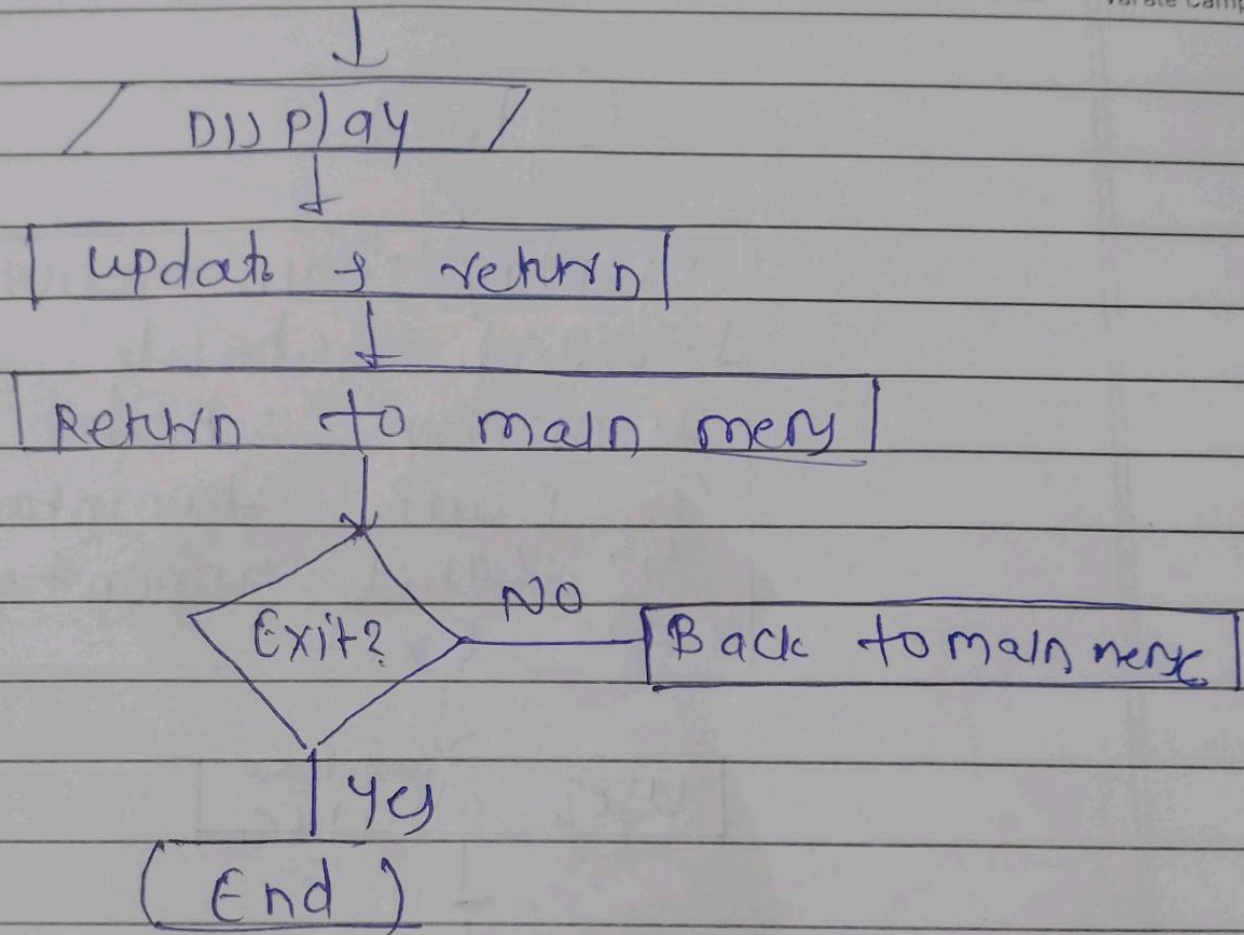 Display
update & return
Return to main menu
Exit?
NO
Back to main menu
Yes
End